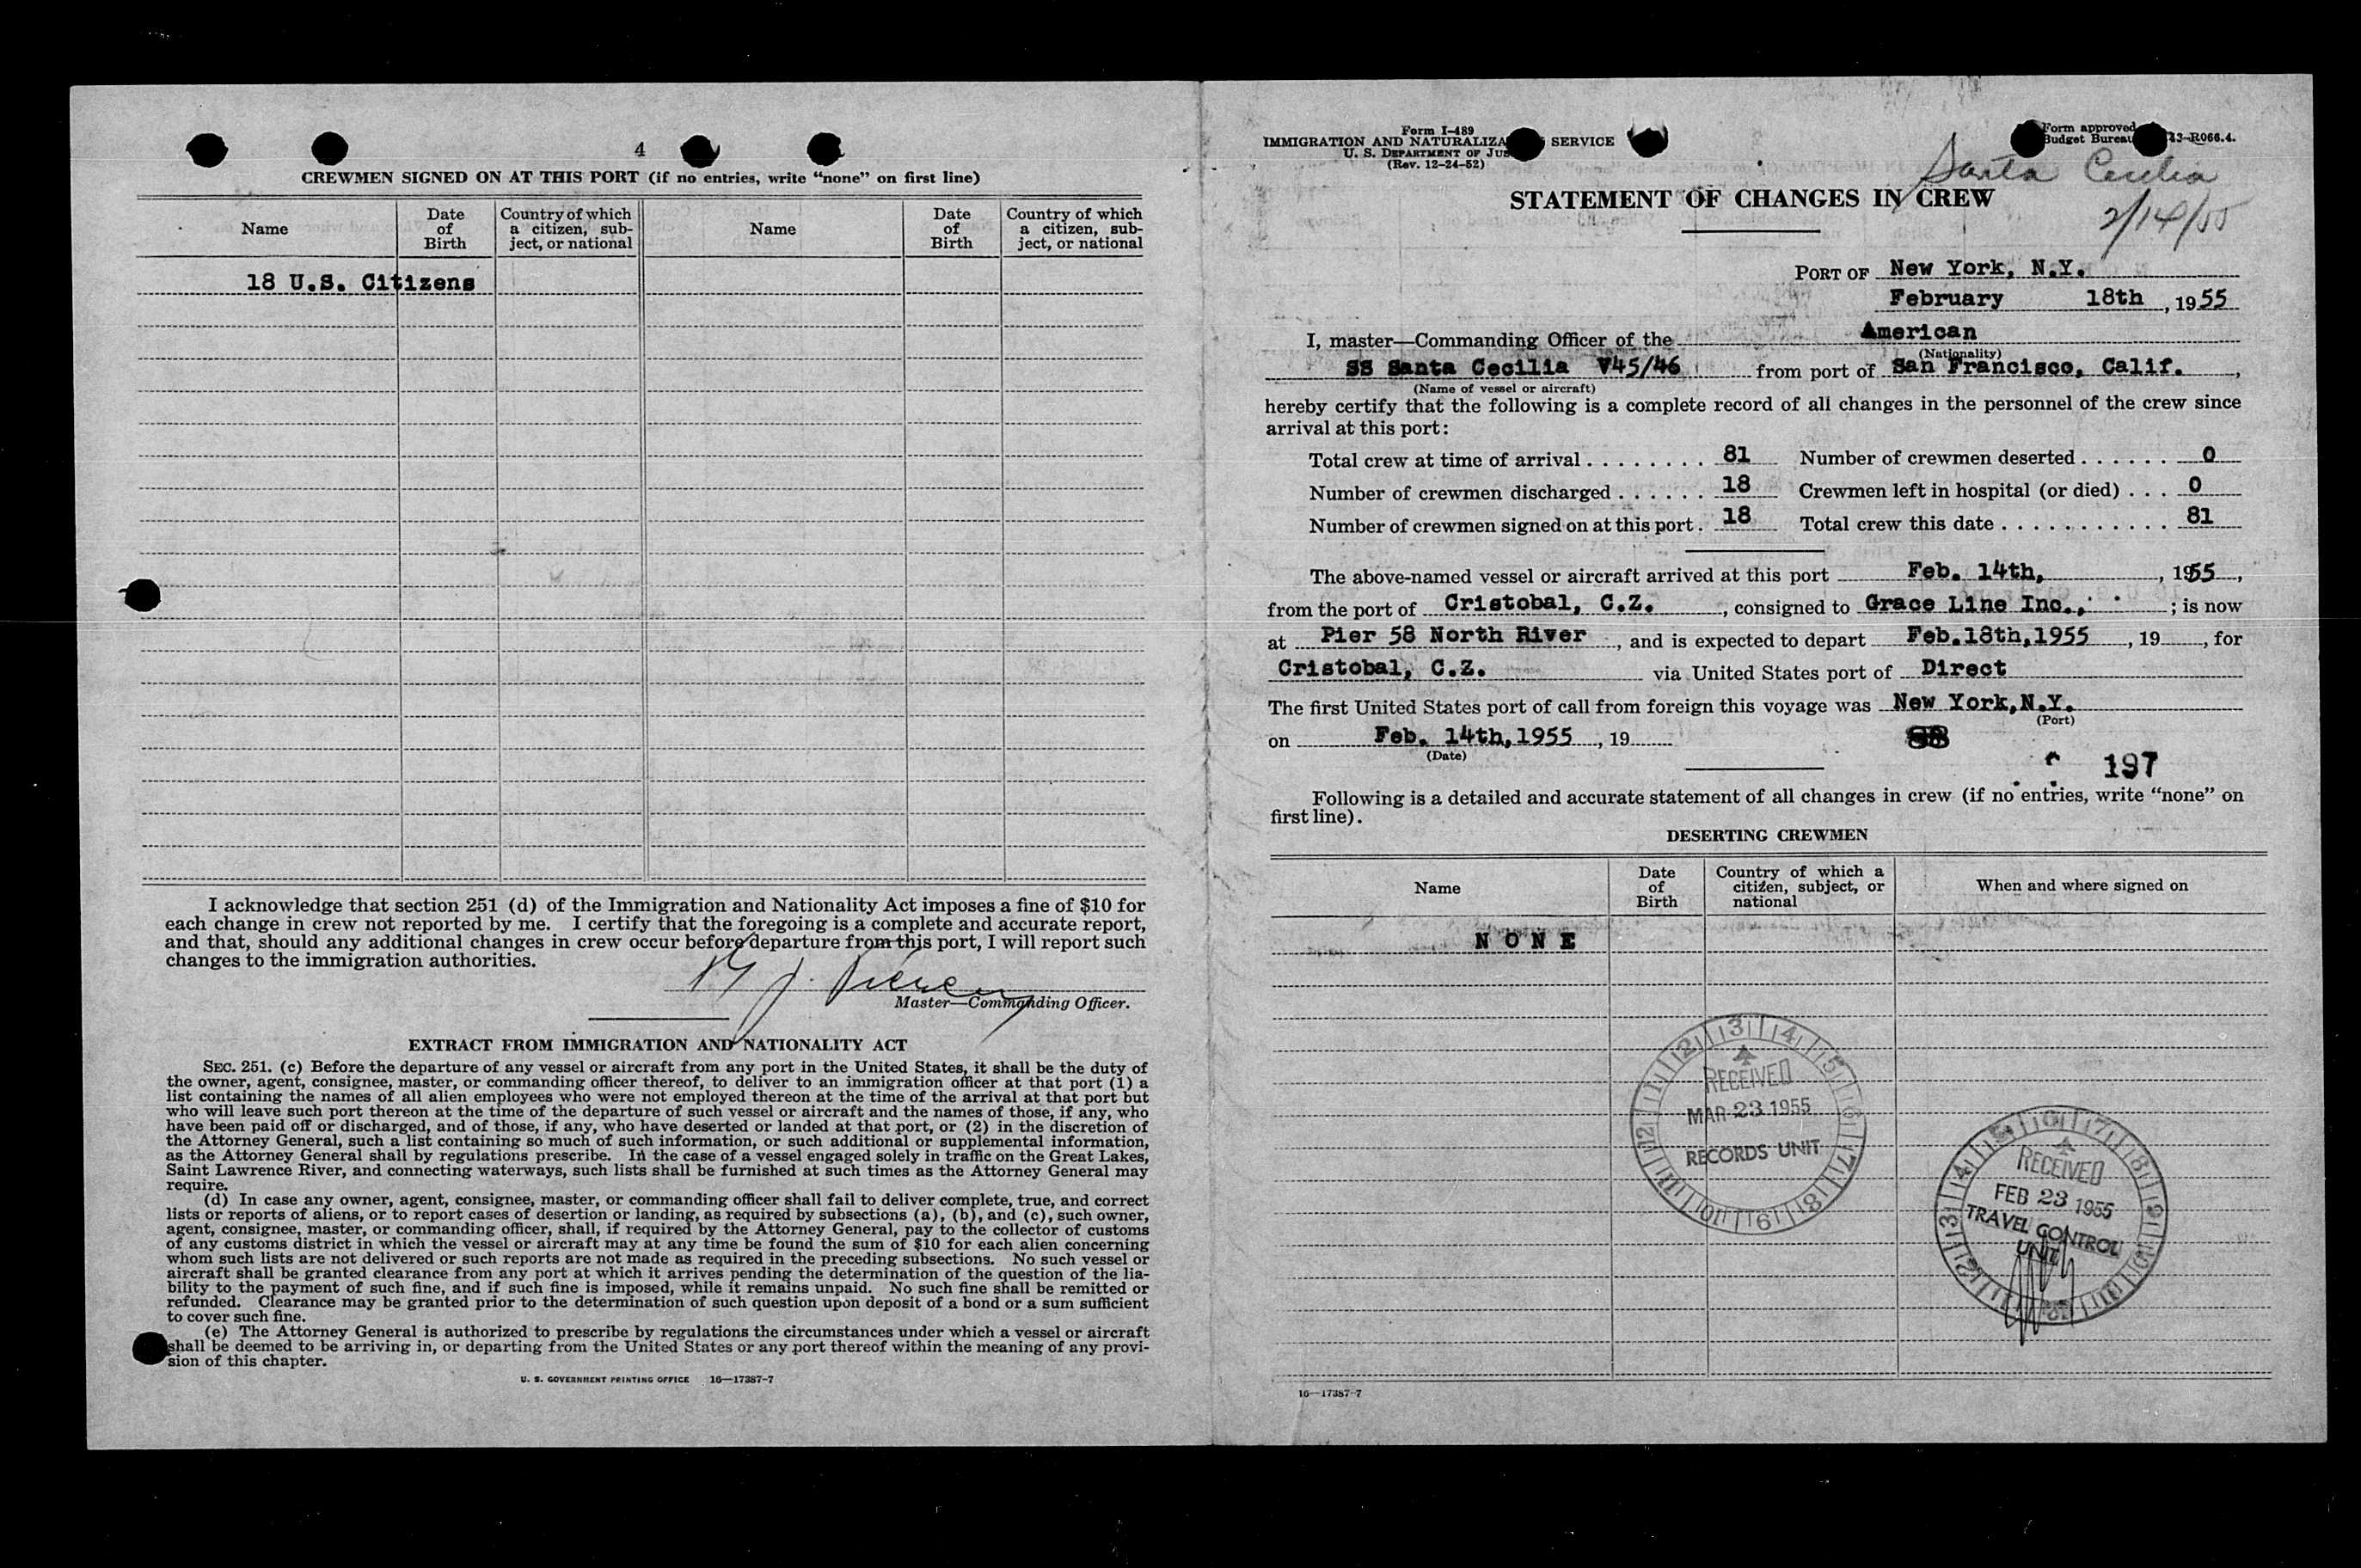 4
CREWMEN SIGNED ON AT THIS PORT (if no entries, write “none” on first line)
Name
Date of Birth
Country of which a citizen, subject, or national
Name
Date of Birth
Country of which a citizen, subject, or national
18 U.S. Citizens
I acknowledge that section 251 (d) of the Immigration and Nationality Act imposes a fine of $10 for
each change in crew not reported by me. I certify that the foregoing is a complete and accurate report,
and that, should any additional changes in crew occur before departure from this port, I will report such
changes to the immigration authorities.
Master—Commanding Officer.
EXTRACT FROM IMMIGRATION AND NATIONALITY ACT
SEC. 251. (c) Before the departure of any vessel or aircraft from any port in the United States, it shall be the duty of
the owner, agent, consignee, master, or commanding officer thereof, to deliver to an immigration officer at that port (1) a
list containing the names of all alien employees who were not employed thereon at the time of the arrival at that port but
who will leave such port thereon at the time of the departure of such vessel or aircraft and the names of those, if any, who
have been paid off or discharged, and of those, if any, who have deserted or landed at that port, or (2) in the discretion of
the Attorney General, such a list containing so much of such information, or such additional or supplemental information,
as the Attorney General shall by regulations prescribe. In the case of a vessel engaged solely in traffic on the Great Lakes,
Saint Lawrence River, and connecting waterways, such lists shall be furnished at such times as the Attorney General may
require.
(d) In case any owner, agent, consignee, master, or commanding officer shall fail to deliver complete, true, and correct
lists or reports of aliens, or to report cases of desertion or landing, as required by subsections (a), (b), and (c), such owner,
agent, consignee, master, or commanding officer, shall, if required by the Attorney General, pay to the collector of customs
of any customs district in which the vessel or aircraft may at any time be found the sum of $10 for each alien concerning
whom such lists are not delivered or such reports are not made as required in the preceding subsections. No such vessel or
aircraft shall be granted clearance from any port at which it arrives pending the determination of the question of the lia-
bility to the payment of such fine, and if such fine is imposed, while it remains unpaid. No such fine shall be remitted or
refunded. Clearance may be granted prior to the determination of such question upon deposit of a bond or a sum sufficient
to cover such fine.
(e) The Attorney General is authorized to prescribe by regulations the circumstances under which a vessel or aircraft
shall be deemed to be arriving in, or departing from the United States or any port thereof within the meaning of any provi-
sion of this chapter.
U. S. GOVERNMENT PRINTING OFFICE 16—17387-7
Form I-489
IMMIGRATION AND NATURALIZA SERVICE
U. S. DEPARTMENT OF JUS
(Rev. 12-24-52)
Form approved
Budget Bureau 43-R066.4.
Santa Cecilia
2/14/55
STATEMENT OF CHANGES IN CREW
PORT OF New York, N.Y.
February 18th, 1955
I, master—Commanding Officer of the American
(Nationality)
SS Santa Cecilia V45/46 from port of San Francisco, Calif.,
(Name of vessel or aircraft)
hereby certify that the following is a complete record of all changes in the personnel of the crew since
arrival at this port:
Total crew at time of arrival 81 Number of crewmen deserted 0
Number of crewmen discharged 18 Crewmen left in hospital (or died) 0
Number of crewmen signed on at this port 18 Total crew this date 81
The above-named vessel or aircraft arrived at this port Feb. 14th, , 1955,
from the port of Cristobal, C.Z. , consigned to Grace Line Inc., ; is now
at Pier 58 North River , and is expected to depart Feb.18th,1955 , 19 , for
Cristobal, C.Z. via United States port of Direct
The first United States port of call from foreign this voyage was New York,N.Y.
(Port)
on Feb. 14th,1955 , 19
(Date)
197
Following is a detailed and accurate statement of all changes in crew (if no entries, write “none” on
first line).
DESERTING CREWMEN
Name
Date of Birth
Country of which a citizen, subject, or national
When and where signed on
NONE
RECEIVED
MAR 23 1955
RECORDS UNIT
RECEIVED
FEB 23 1955
TRAVEL CONTROL
UNIT
16—17387-7